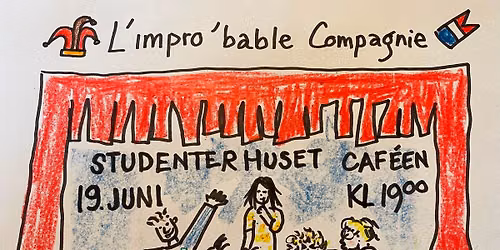 L'impro'bable Compagnie
STUDENTERHUSET CAFÉEN
19. JUNI KL 19⁰⁰